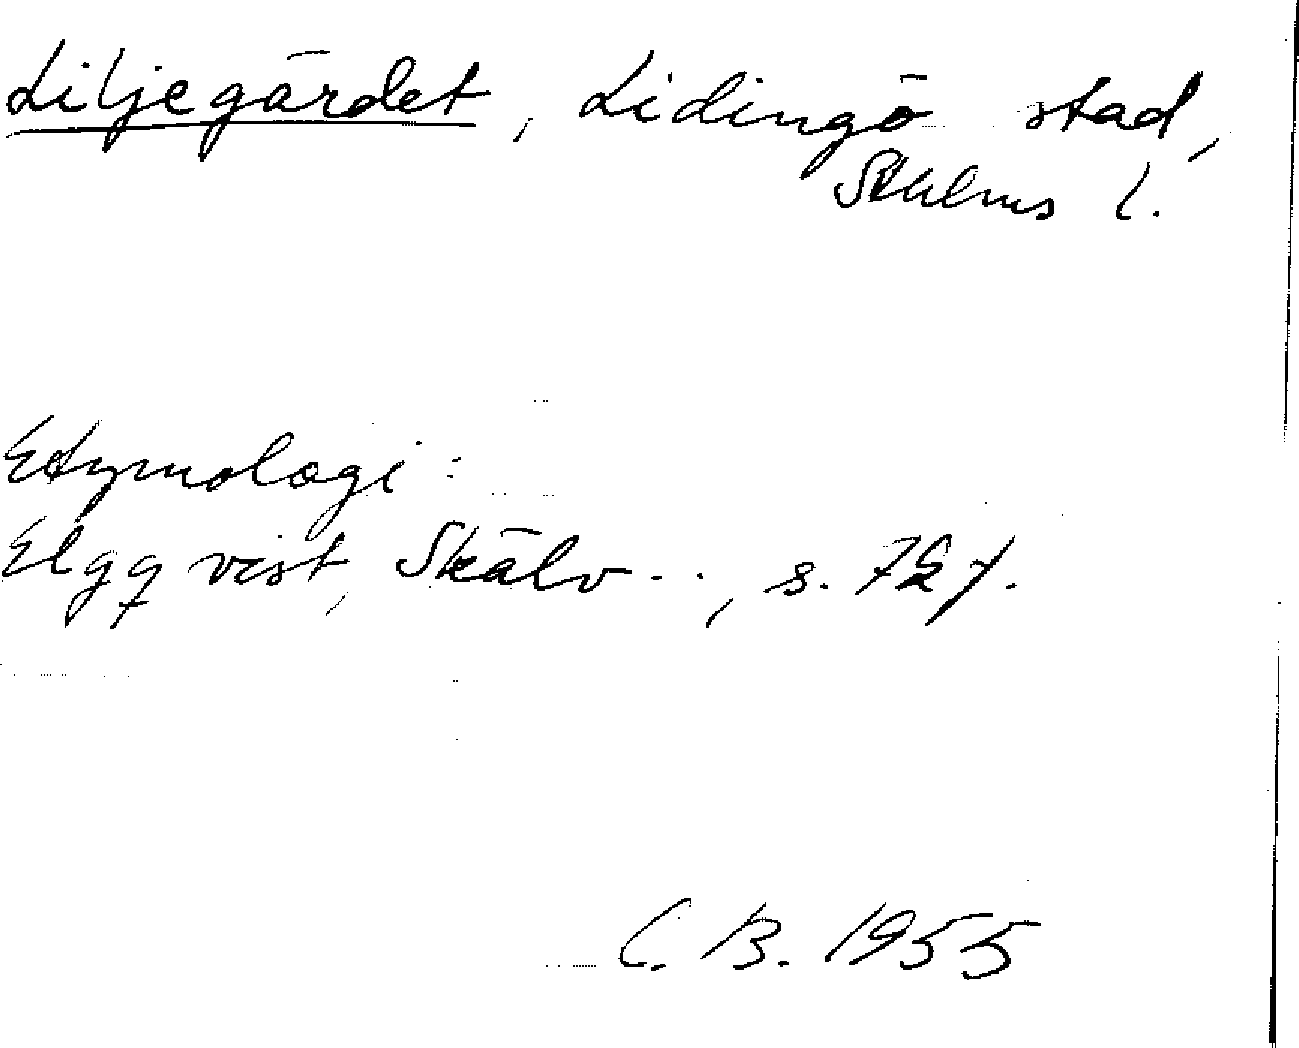 Liljegärdet, Lidingö stad,
Sthlms l.
Etymologi:
Elgqvist, Skälv..., s. 72 f.
C. B. 1955